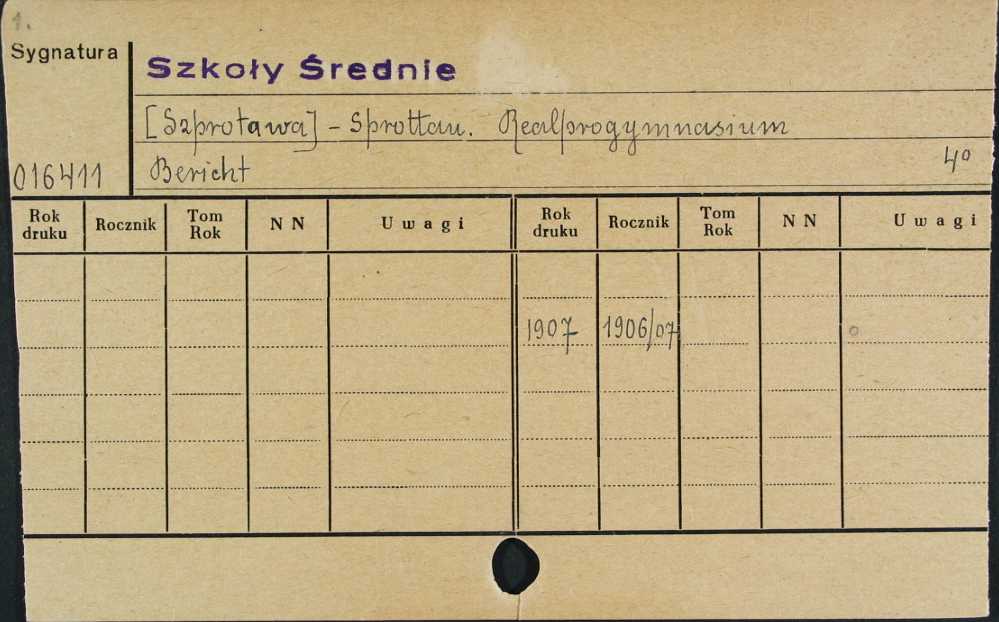 1.
Sygnatura
Szkoły Średnie
[Szprotawa] - Sprottau. Realprogymnasium
016411 Bericht 4°
Rok druku Rocznik Tom Rok N N Uwagi Rok druku Rocznik Tom Rok N N Uwagi
1907 1906/07 o